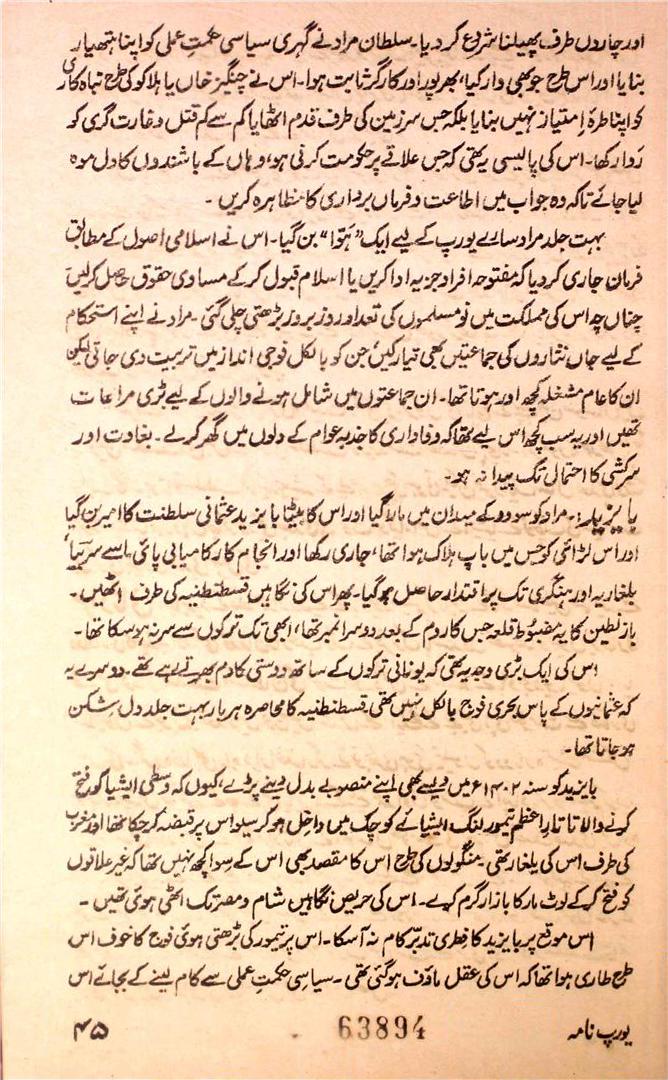 اور چاروں طرف پھیلنا شروع کر دیا۔ سلطان مراد نے گہری سیاسی حکمتِ عملی کو اپنا ہتھیار
بنایا اور اس طرح جو بھی وار کیا، بھرپور اور کارگر ثابت ہوا۔ اس نے چنگیز خاں یا ہلاکو کی طرح تباہ کاری
کو اپنا طرۂ امتیاز نہیں بنایا بلکہ جس سرزمین کی طرف قدم اٹھایا کم سے کم قتل و غارت گری کو
رَوا رکھا۔ اس کی پالیسی یہ تھی کہ جس علاقے پر حکومت کرنی ہو، وہاں کے باشندوں کا دل موہ
لیا جائے تاکہ وہ جواب میں اطاعت و فرماں برداری کا مظاہرہ کریں۔
بہت جلد مراد سارے یورپ کے لیے ایک ”ہَوّا“ بن گیا۔ اس نے اسلامی اصول کے مطابق
فرمان جاری کر دیا کہ مفتوحہ افراد جزیہ ادا کریں یا اسلام قبول کر کے مساوی حقوق حاصل کر لیں
چناں چہ اس کی مملکت میں نو مسلموں کی تعداد روز بروز بڑھتی چلی گئی۔ مراد نے اپنے استحکام
کے لیے جاں نثاروں کی جماعتیں بھی تیار کیں جن کو بالکل فوجی انداز میں تربیت دی جاتی لیکن
ان کا عام مشغلہ کچھ اور ہوتا تھا۔ ان جماعتوں میں شامل ہونے والوں کے لیے بڑی مراعات
تھیں اور یہ سب کچھ اس لیے تھا کہ وفاداری کا جذبہ عوام کے دلوں میں گھر کرلے۔ بغاوت اور
سرکشی کا احتمال تک پیدا نہ ہو۔
بایزید:۔ مراد کوسووو کے میدان میں مارا گیا اور اس کا بیٹا بایزید عثمانی سلطنت کا امیر بن گیا
اور اس لڑائی کو جس میں باپ ہلاک ہوا تھا، جاری رکھا اور انجام کار کامیابی پائی۔ اسے سربیا،
بلغاریہ اور ہنگری تک پر اقتدار حاصل ہو گیا۔ پھر اس کی نگاہیں قسطنطنیہ کی طرف اٹھیں۔
بازنطین کا یہ مضبوط قلعہ جس کا روم کے بعد دوسرا نمبر تھا، ابھی تک ترکوں سے سر نہ ہو سکا تھا۔
اس کی ایک بڑی وجہ یہ تھی کہ یونانی ترکوں کے ساتھ دوستی کا دم بھرتے رہے تھے۔ دوسرے یہ
کہ عثمانیوں کے پاس بحری فوج بالکل نہیں تھی۔ قسطنطنیہ کا محاصرہ ہر بار بہت جلد دل شکن
ہو جاتا تھا۔
بایزید کو سنہ ۱۴۰۲ء میں ویسے بھی اپنے منصوبے بدل دینے پڑے، کیوں کہ وسطی ایشیا کو فتح
کرنے والا تاتارِ اعظم تیمور لنگ ایشیائے کوچک میں داخل ہو کر سیواس پر قبضہ کر چکا تھا اور مغرب
کی طرف اس کی یلغار تھی۔ منگولوں کی طرح اس کا مقصد بھی اس کے سوا کچھ نہیں تھا کہ غیر علاقوں
کو فتح کر کے لوٹ مار کا بازار گرم کرے۔ اس کی حریص نگاہیں شام و مصر تک اٹھی ہوئی تھیں۔
اس موقع پر بایزید کا فطری تدبّر کام نہ آسکا۔ اس پر تیمور کی بڑھتی ہوئی فوج کا خوف اس
طرح طاری ہوا تھا کہ اس کی عقل ماؤف ہو گئی تھی۔ سیاسی حکمتِ عملی سے کام لینے کے بجائے اس
یورپ نامہ 63894 ۴۵